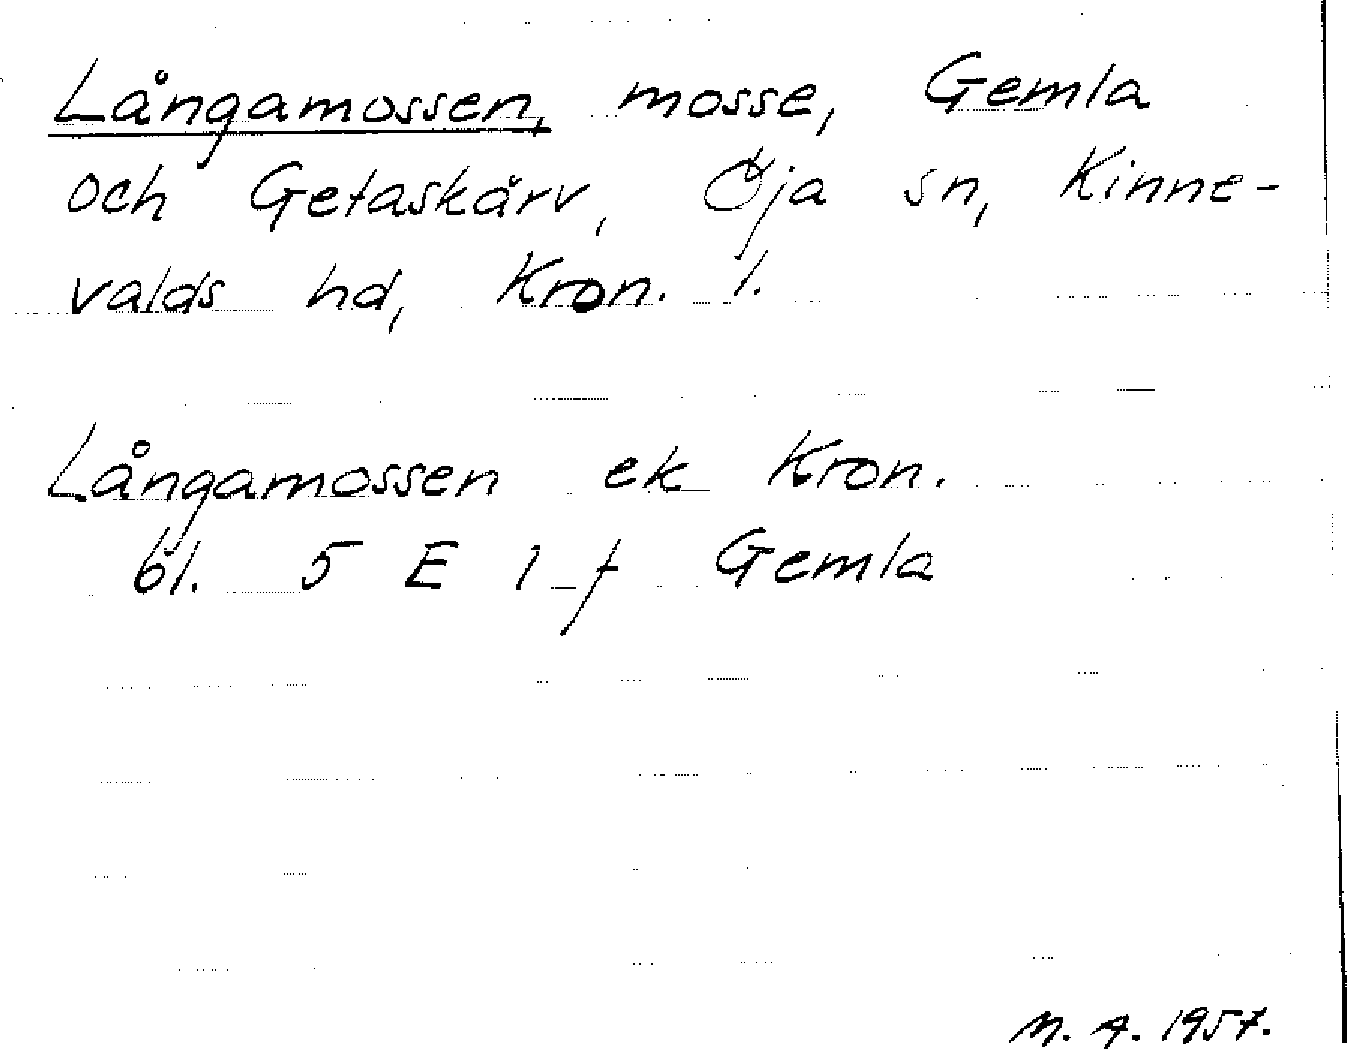 Långamossen, mosse, Gemla
och Getaskärv, Öja sn, Kinne-
valds hd, Kron. l.
Långamossen ek Kron.
bl. 5 E 1 f Gemla
M. A. 1957.